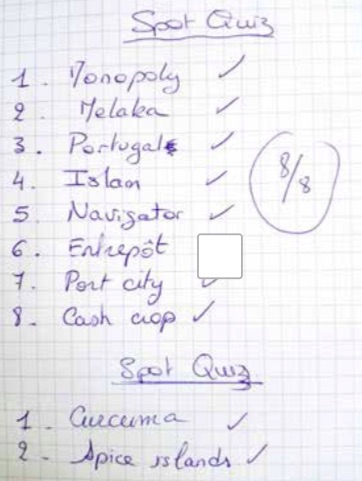 Spot Quiz
1. Monopoly ✓
2. Melaka ✓
3. Portugal ✓
4. Islam ✓
5. Navigator ✓
8/8
6. Entrepôt
7. Port city ✓
8. Cash crop ✓
Spot Quiz
1. Curcuma ✓
2. Spice islands ✓